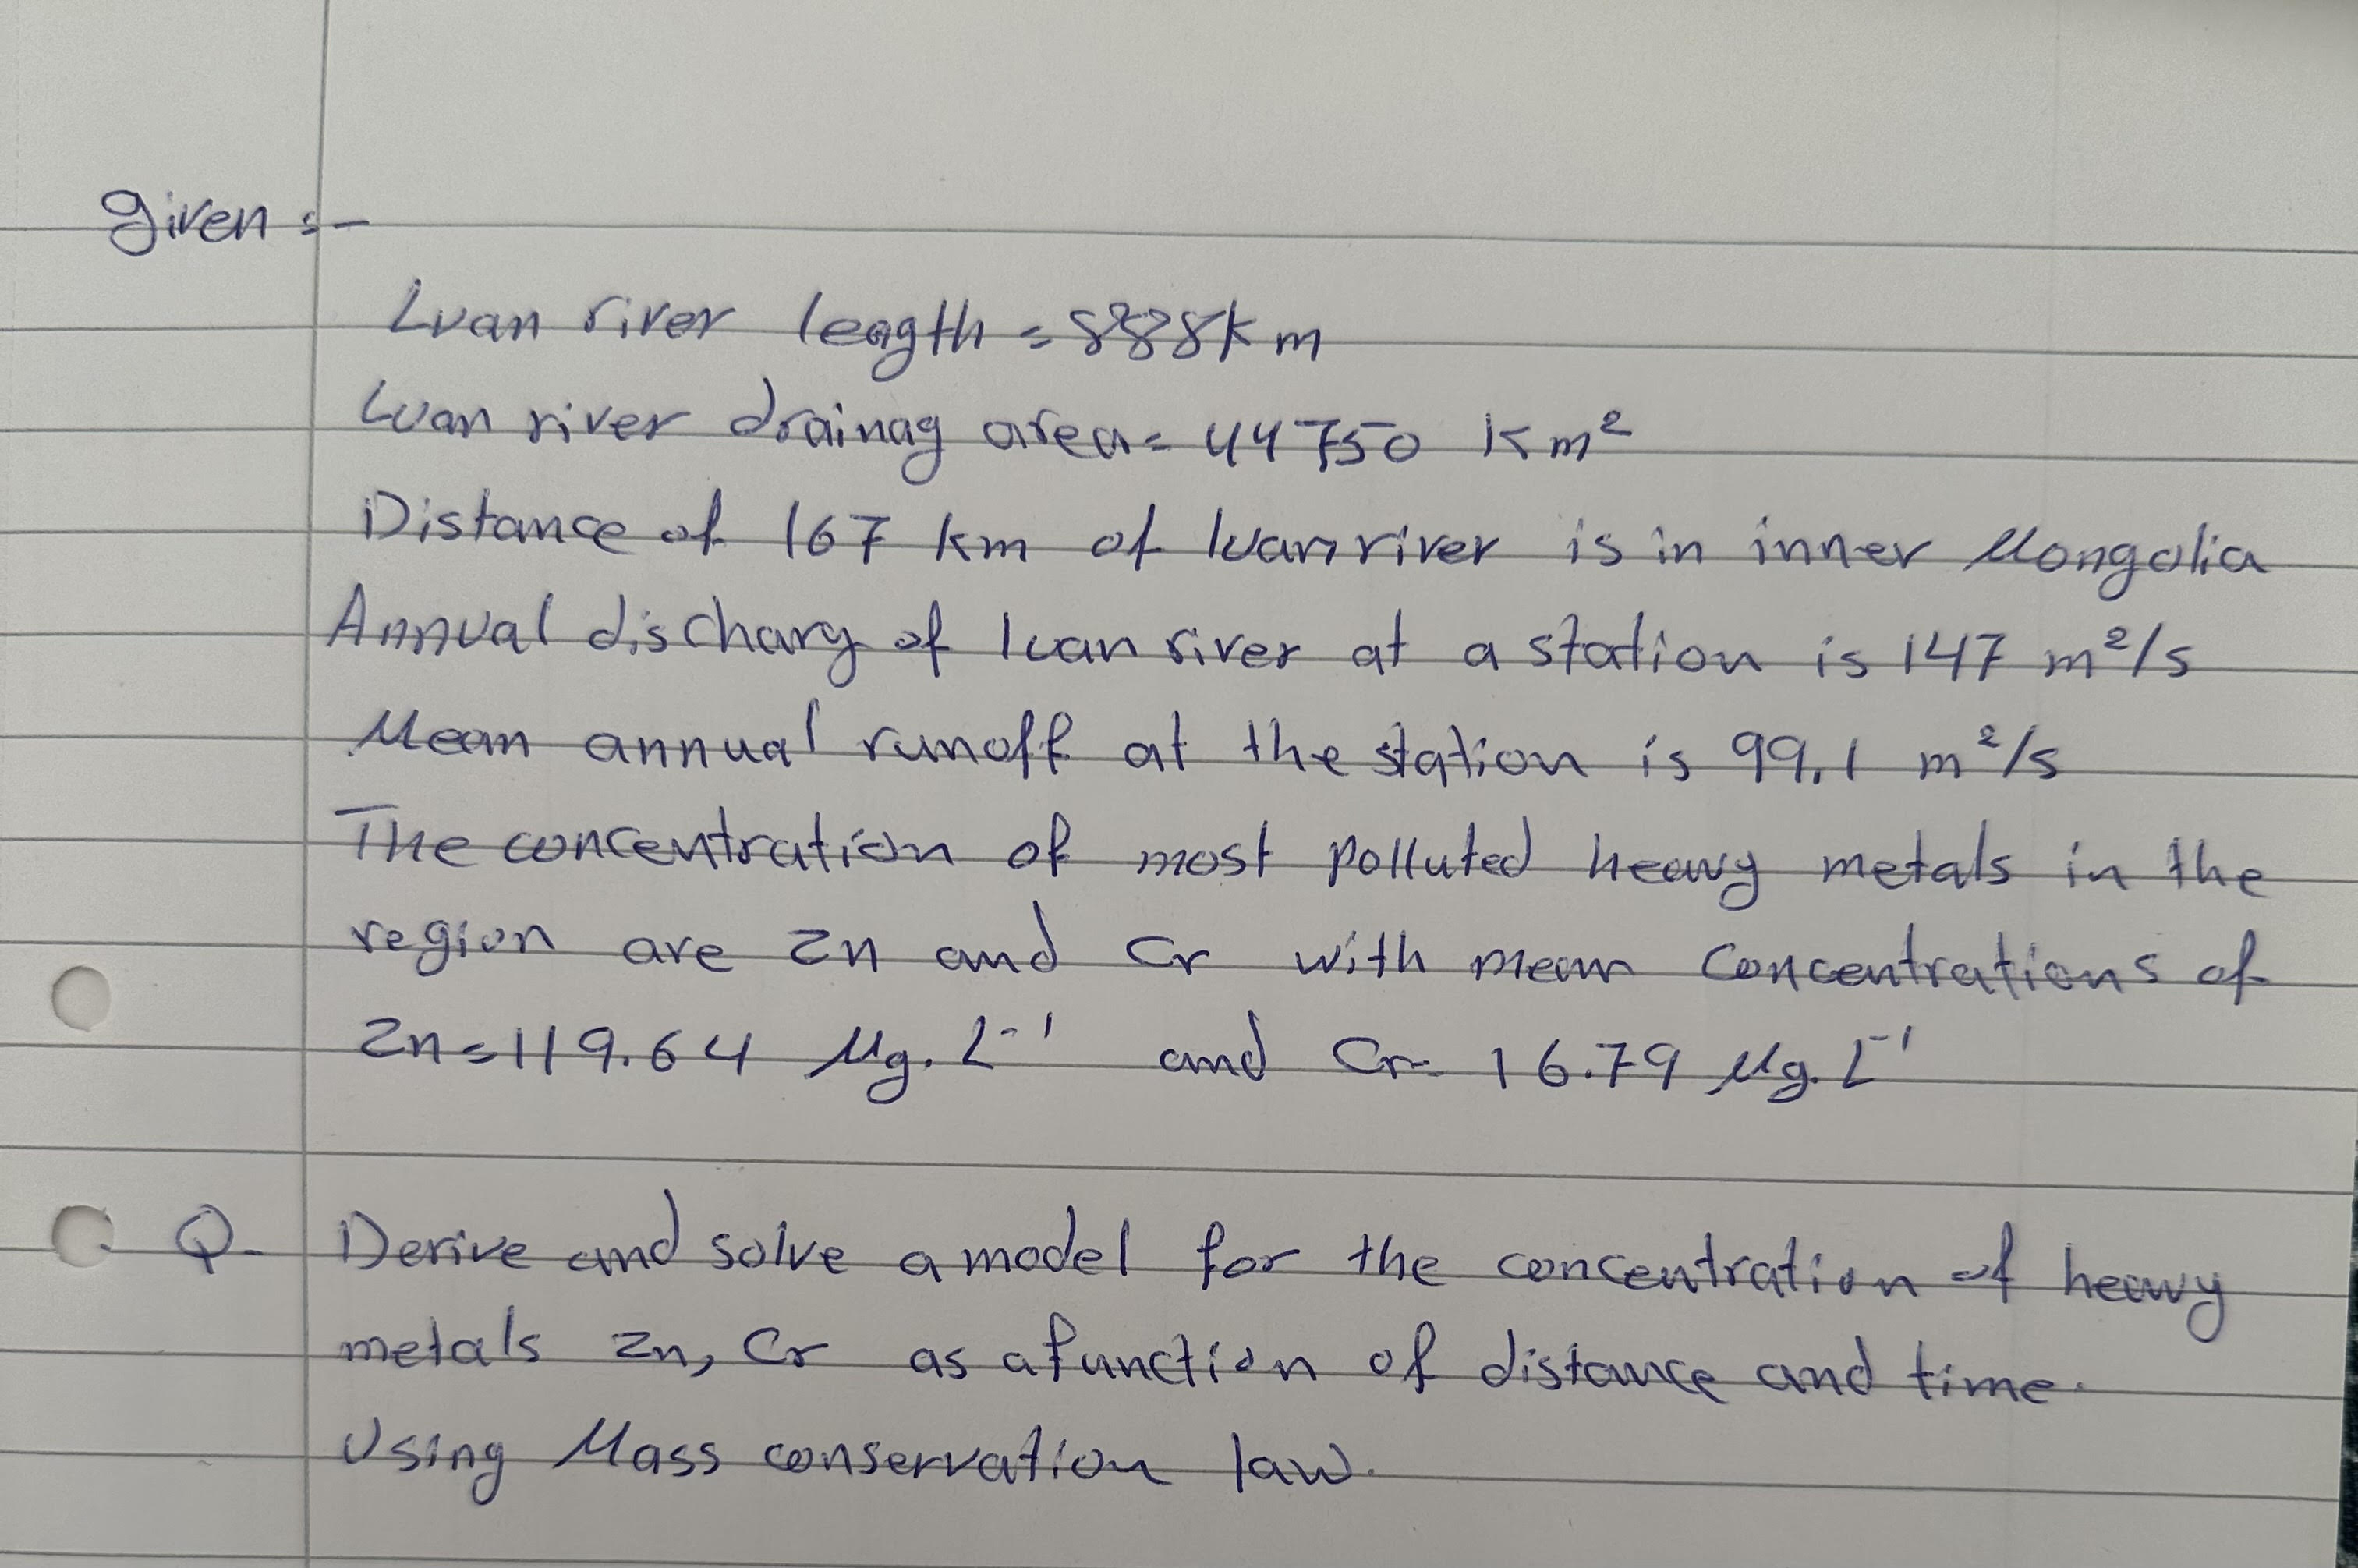 given :-
Luan river length = 888km
Luan river drainag area = 44750 Km²
Distance of 167 km of luan river is in inner Mongolia
Annual discharg of luan river at a station is 147 m²/s
Mean annual runoff at the station is 99.1 m²/s
The concentration of most polluted heavy metals in the
region are Zn and Cr with mean concentrations of
Zn = 119.64 Mg. L⁻¹ and Cr = 16.79 Mg. L⁻¹
Q- Derive and solve a model for the concentration of heavy
metals Zn, Cr as a function of distance and time.
Using Mass conservation law.